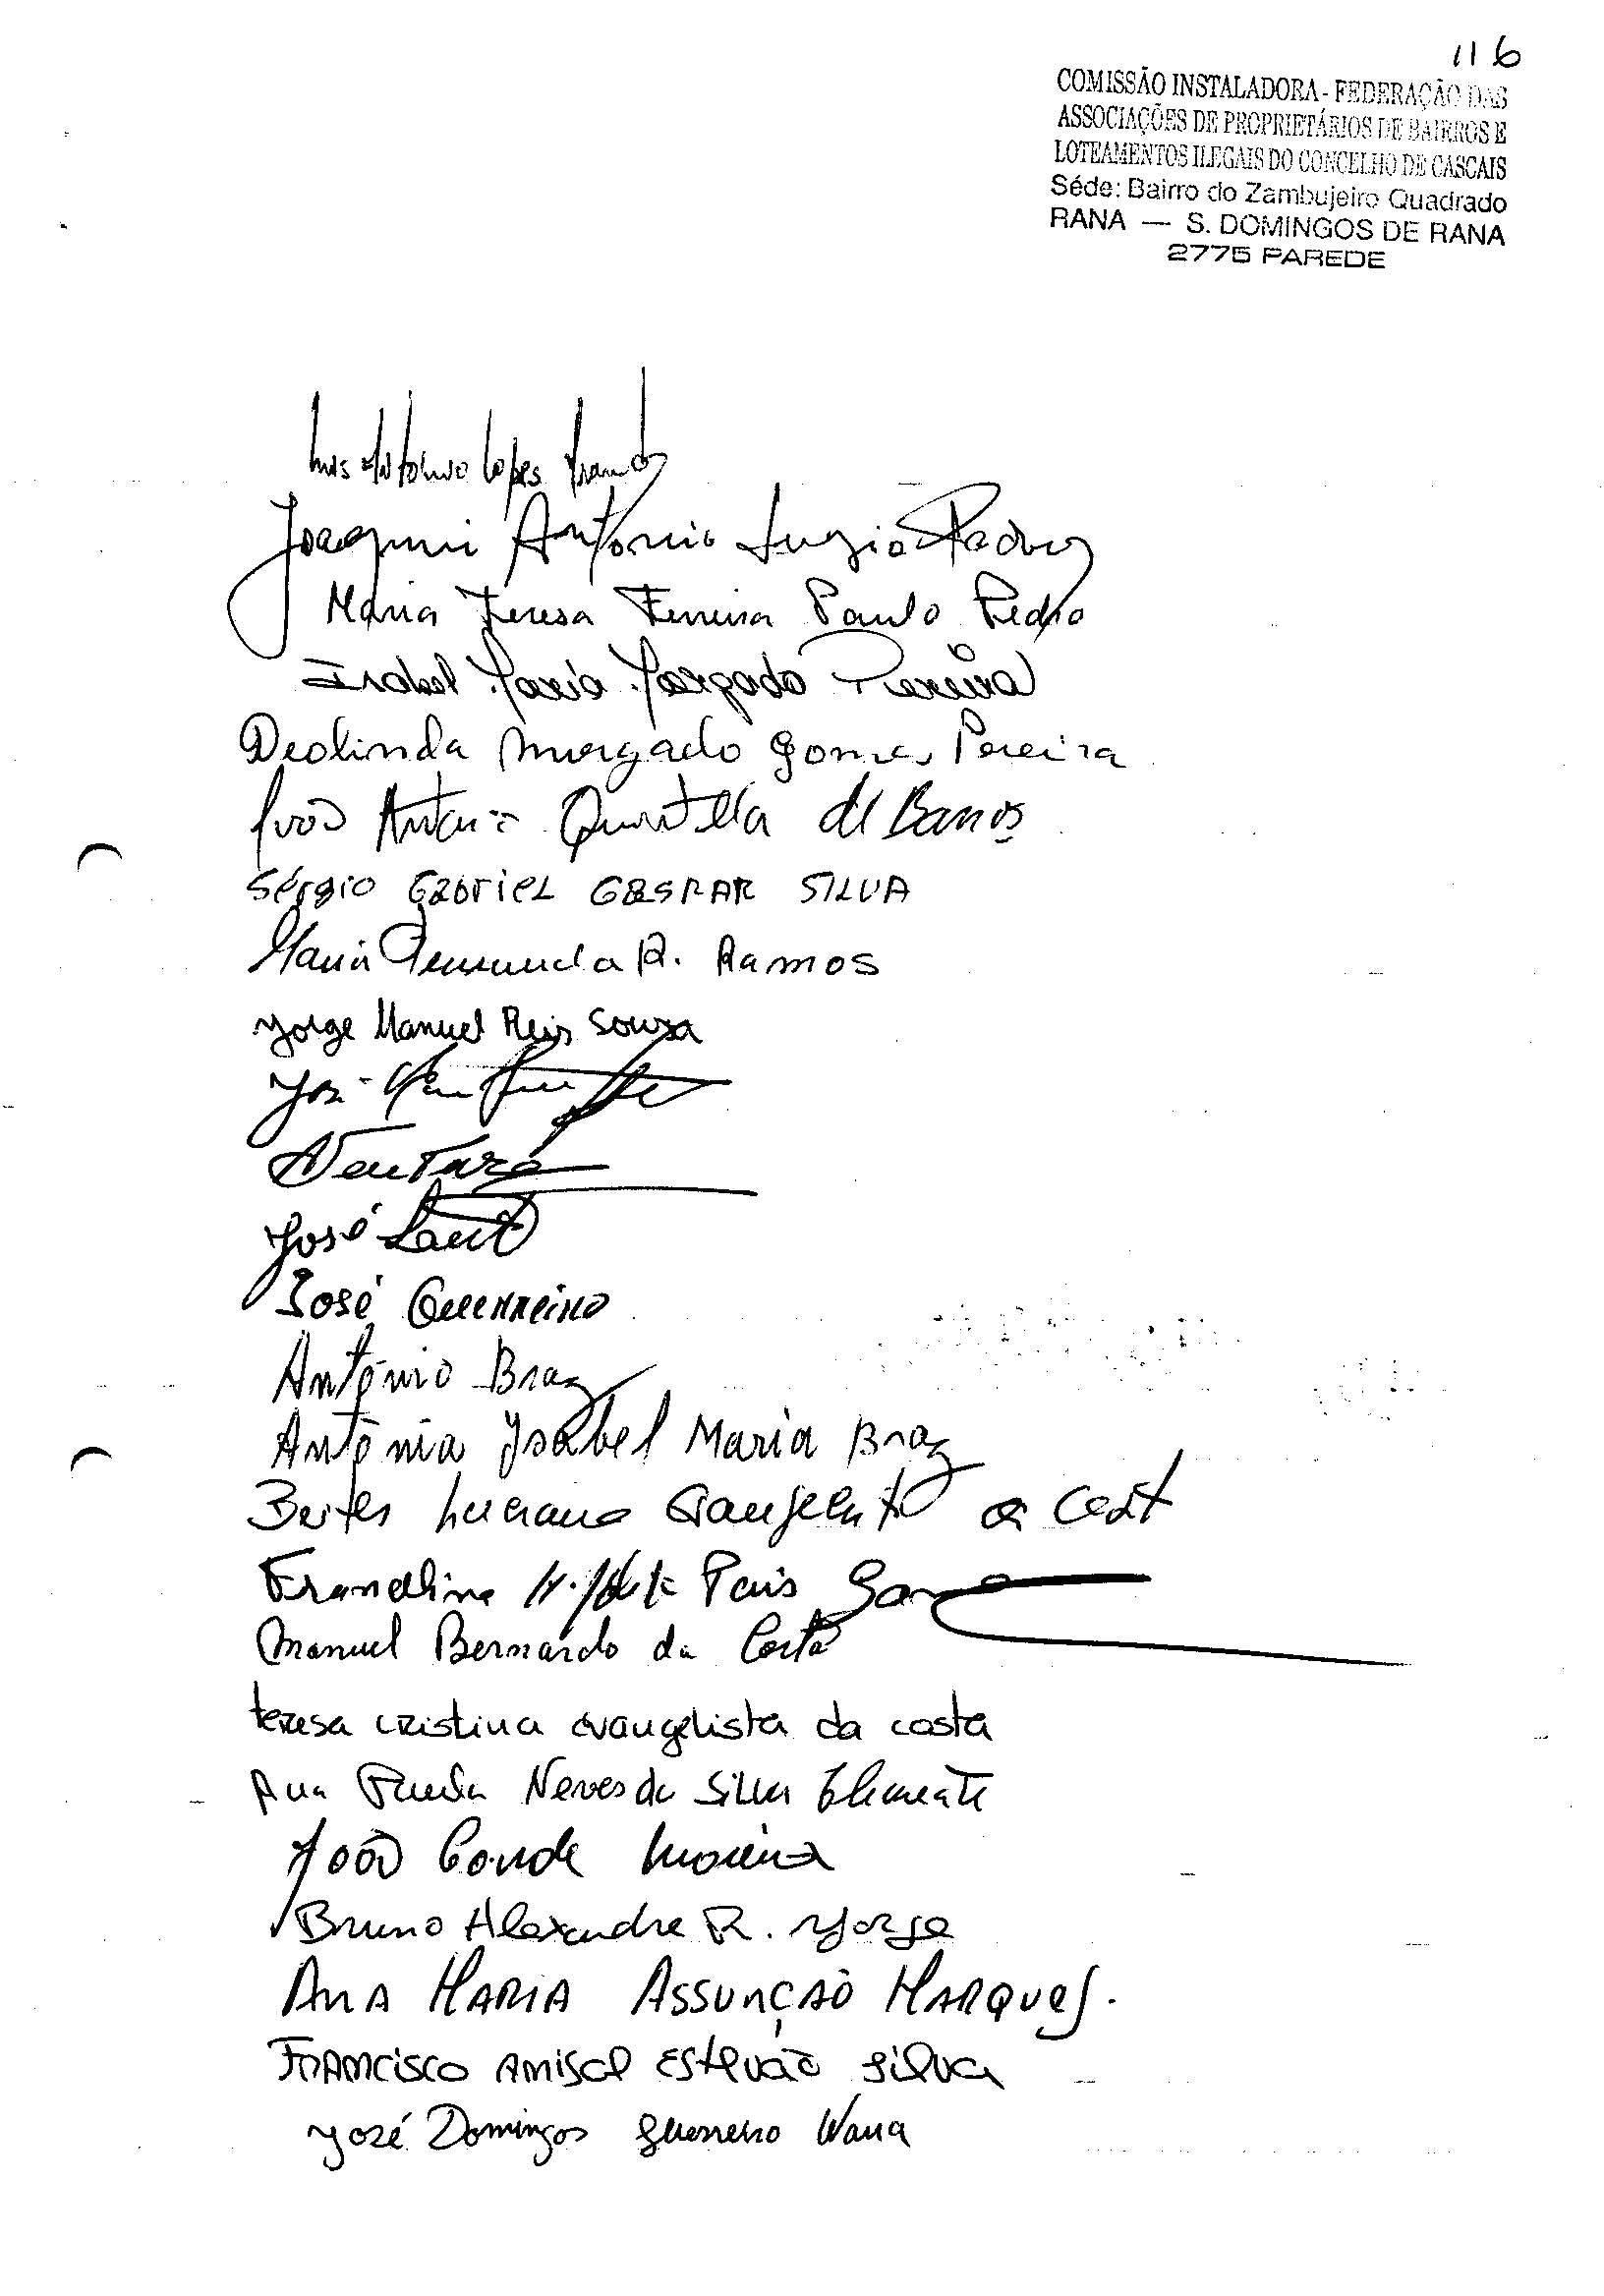 116
COMISSÃO INSTALADORA - FEDERAÇÃO DAS
ASSOCIAÇÕES DE PROPRIETÁRIOS DE BAIRROS E
LOTEAMENTOS ILEGAIS DO CONCELHO DE CASCAIS
Séde: Bairro do Zambujeiro Quadrado
RANA — S. DOMINGOS DE RANA
2775 PAREDE
Luis António Lopes
Joaquim António Luzio
Maria Teresa Ferreira Paulo Pedro
Isabel Maria Morgado Pereira
Deolinda Morgado Gomes Pereira
João António Quintella de Barros
Sérgio Gabriel GASPAR SILVA
Maria Fernanda R. Ramos
Jorge Manuel Reis Sousa
Ventura
José
José Guerreiro
António Braz
Antónia Isabel Maria Braz
Luciano
Pais
Manuel Bernardo da Costa
teresa cristina evangelista da costa
Ana Paula Neves da Silva Clemente
João Conde Moreira
Bruno Alexandre R. Jorge
ANA MARIA ASSUNÇÃO MARQUES.
FRANCISCO Estevão Silva
José Domingos Guerreiro